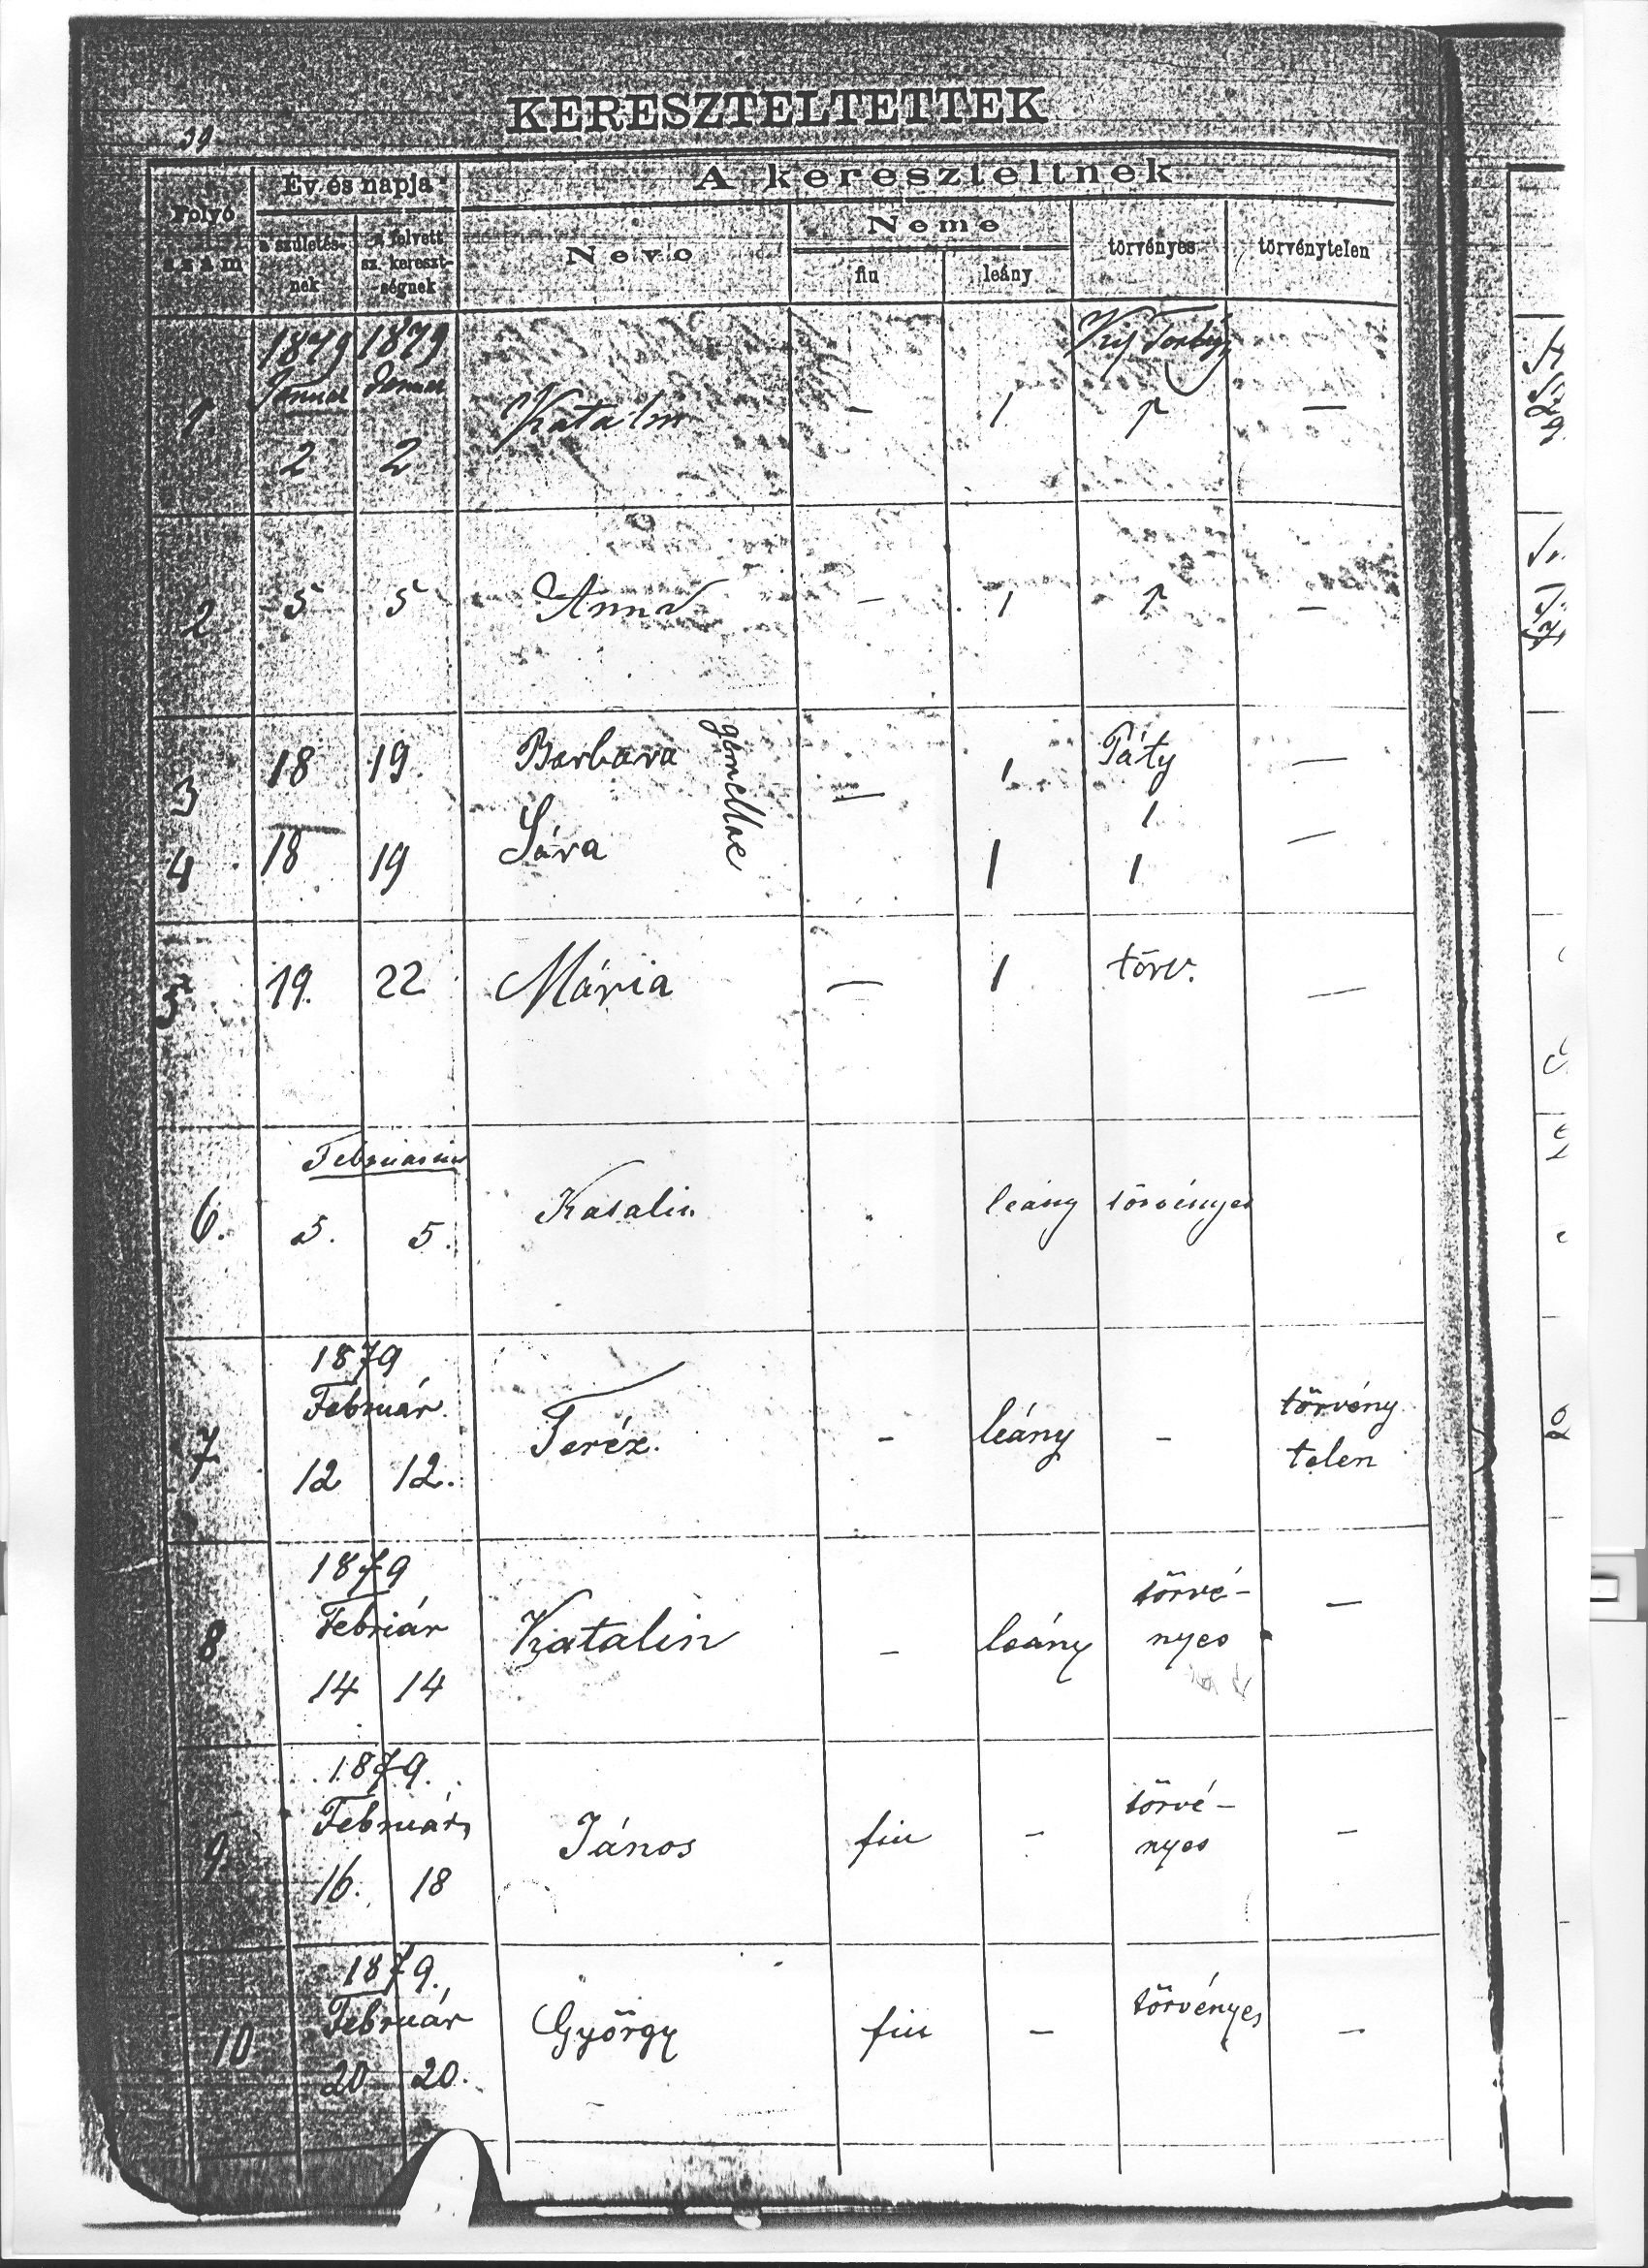 KERESZTELTETTEK
39
A kereszteltnek
Folyó szám
Ev és napja
a születés-nek
a felvett sz. kereszt-ségnek
Neve
Neme
fiu
leány
törvényes
törvénytelen
1879 1879
Januar Januar
1. 2 2 Katalin — 1 1 —
2 5 5 Anna — 1 1 —
3 18 19. Barbara gemellae — 1 Páty 1 —
4 18 19 Sára 1 1 —
5 19. 22 Mária — 1 törv. —
Februarius
6. 5. 5. Katalin leány törvényes
1879
Február.
7 12 12. Teréz. - leány - törvény telen
1879
Febriár
8 14 14 Katalin - leány törvé-nyes —
1879.
Február
9 16. 18 János fiu - törvé-nyes -
1879.
Február
10 20 20. György fiu - törvényes -